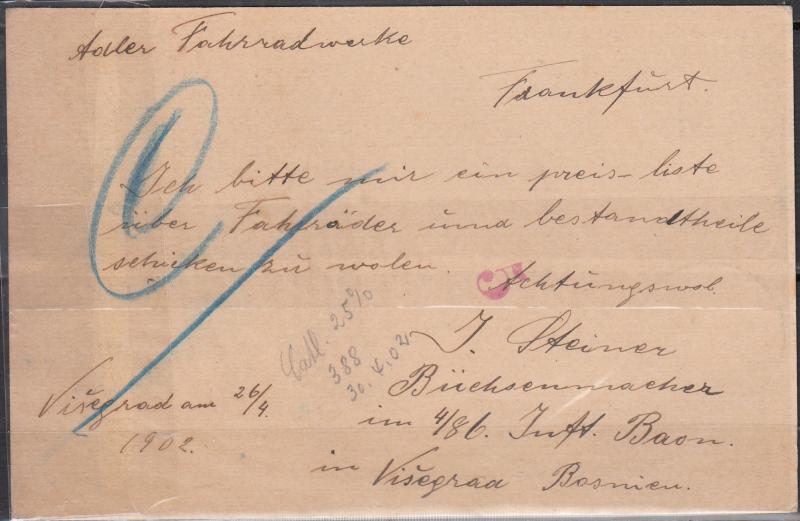 Adler Fahrradwerke
Frankfurt.
Ich bitte mir ein preis-liste
über Fahräder unnd bestandtheile
schicken zu wolen.
Achtungswol.
J. Steiner
Büchsenmacher
im 4/86. Inft. Baon.
in Višegrad Bosnien.
Višegrad am 26/4.
1902.
Catl. 25%
388
30.4.02